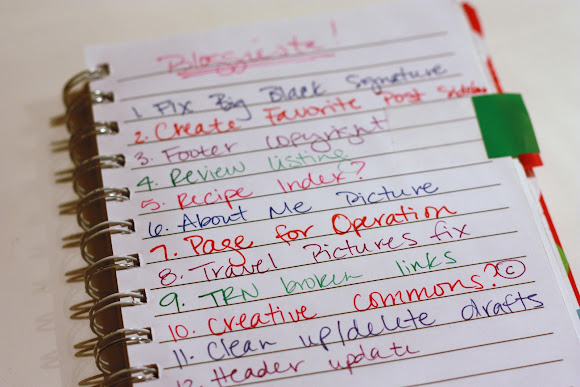 Blogsista!
1. Fix Big Black Signature
2. Create Favorite Post Sidebar
3. Footer copyright
4. Review listing
5. Recipe Index?
6. About Me Picture
7. Page for Operation
8. Travel Pictures fix
9. TRN broken links
10. Creative commons? ©
11. Clean up/delete drafts
12. Header update